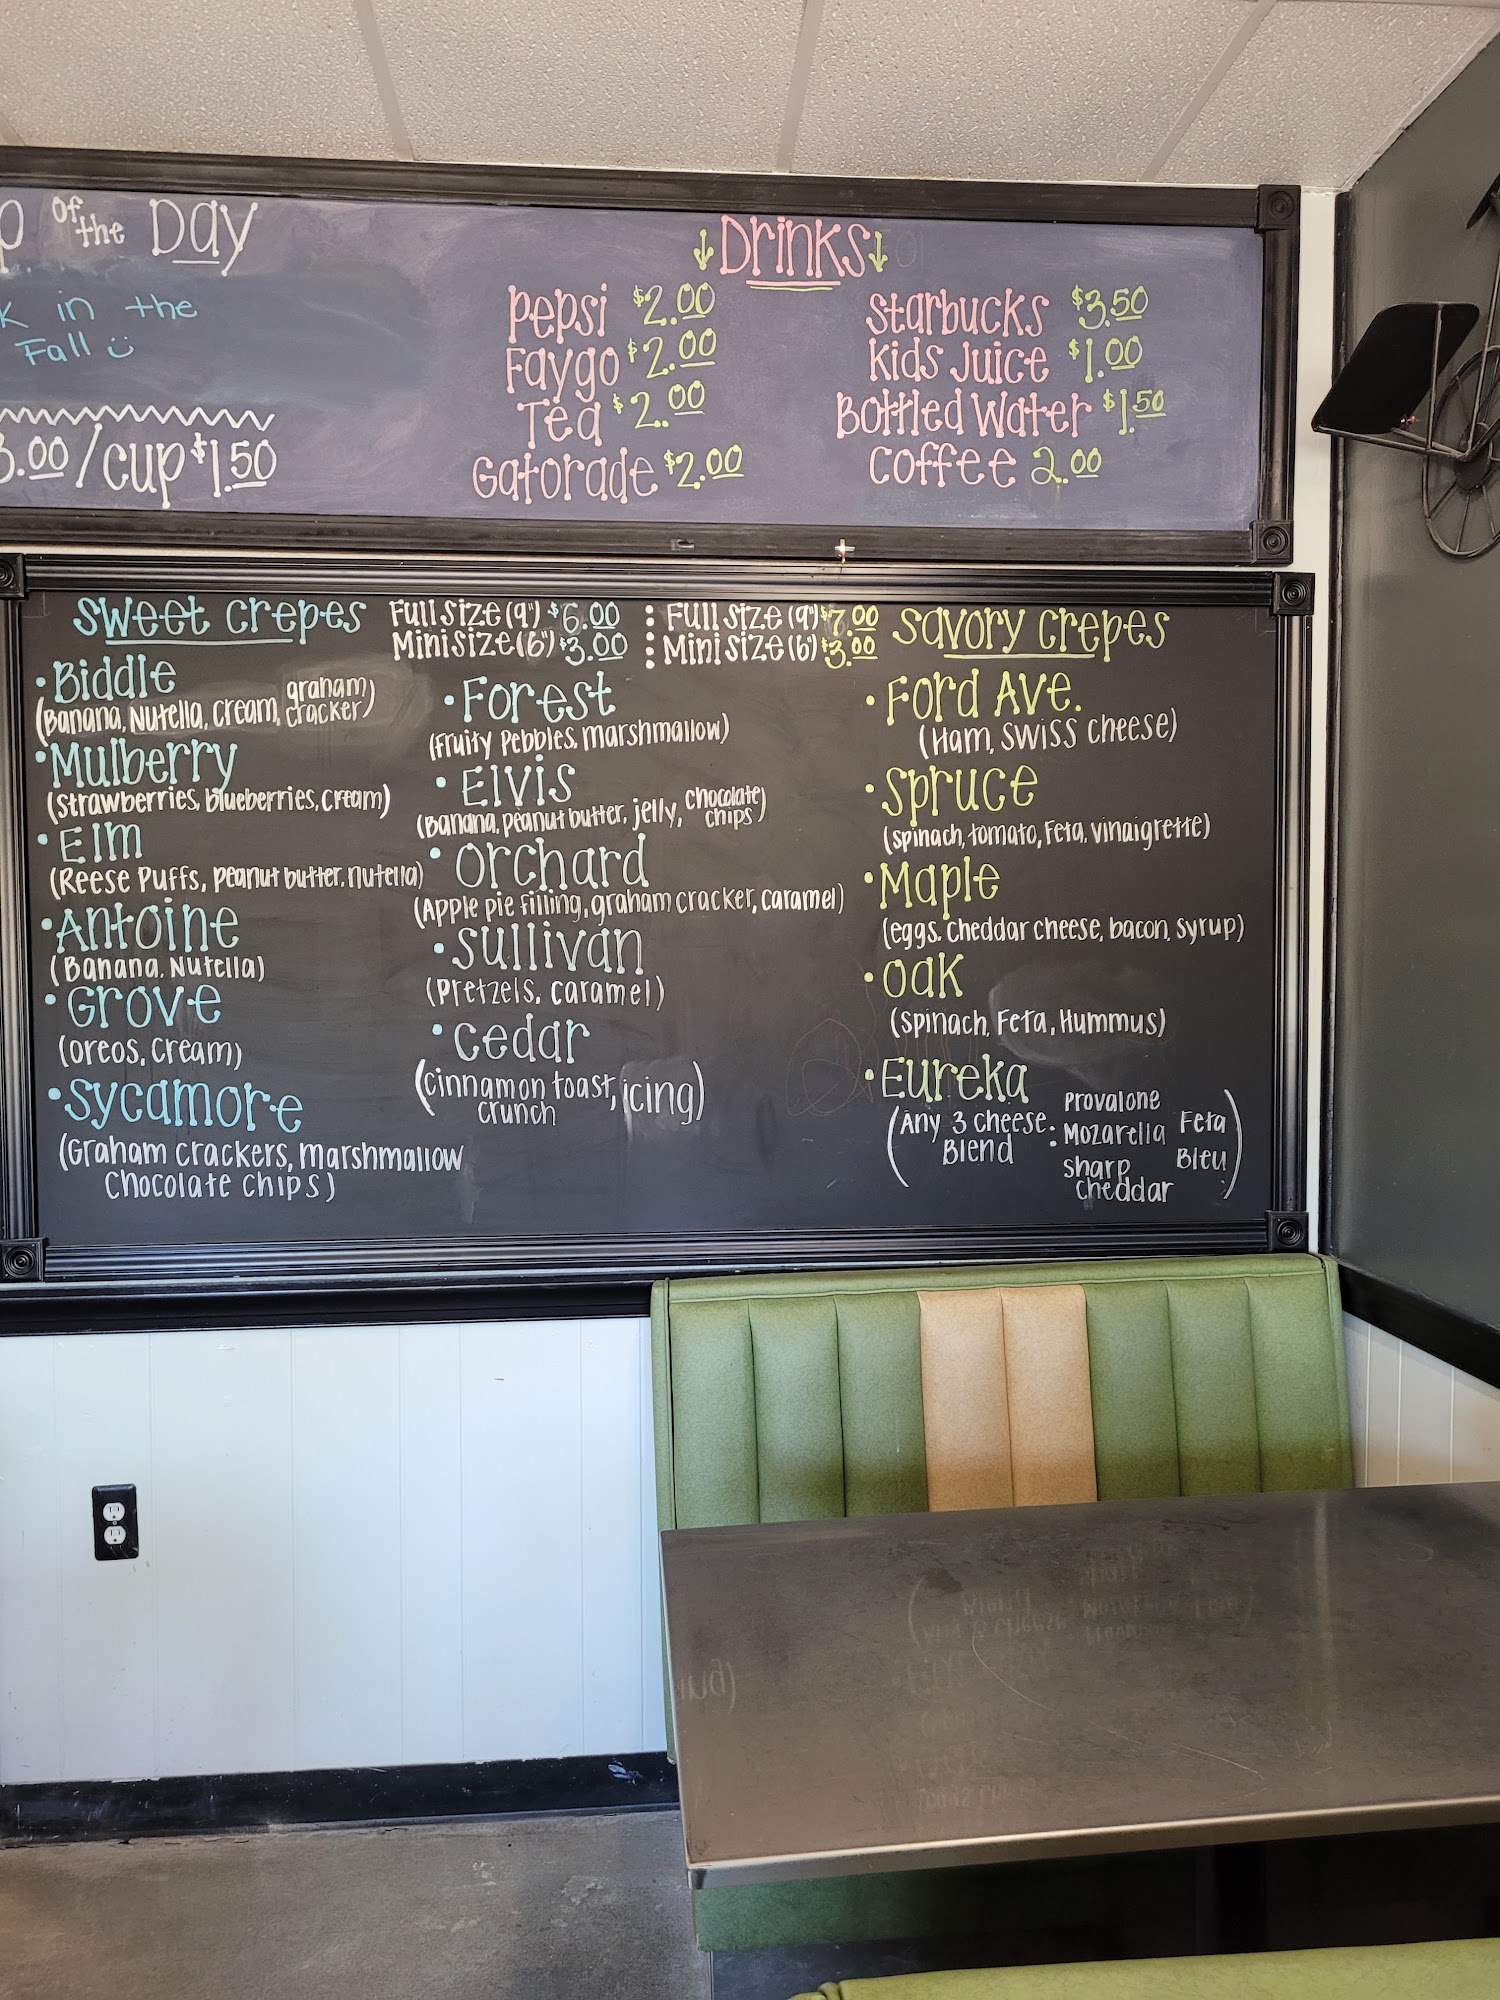 of the Day
in the
Fall
.00/cup $1.50
Drinks
Pepsi $2.00
Faygo $2.00
Tea $2.00
Gatorade $2.00
Starbucks $3.50
Kids Juice $1.00
Bottled Water $1.50
Coffee 2.00
Sweet Crepes
Full size (9") $6.00
Mini size (6") $3.00
• Biddle
(Banana, Nutella, cream, graham cracker)
• Mulberry
(strawberries, blueberries, cream)
• Elm
(Reese Puffs, peanut butter, nutella)
• Antoine
(Banana, Nutella)
• Grove
(oreos, cream)
• Sycamore
(Graham crackers, marshmallow
chocolate chips)
• Forest
(Fruity Pebbles, marshmallow)
• Elvis
(Banana, peanut butter, jelly, chocolate chips)
• Orchard
(Apple pie filling, graham cracker, caramel)
• Sullivan
(Pretzels, caramel)
• Cedar
(cinnamon toast crunch, icing)
Full size (9") $7.00
Mini size (6") $3.00
Savory Crepes
• Ford Ave.
(Ham, swiss cheese)
• Spruce
(spinach, tomato, Feta, vinaigrette)
• Maple
(eggs, cheddar cheese, bacon, syrup)
• Oak
(spinach, Feta, Hummus)
• Eureka
(Any 3 cheese Blend :
Provalone
Mozarella
sharp cheddar
Feta
Bleu)